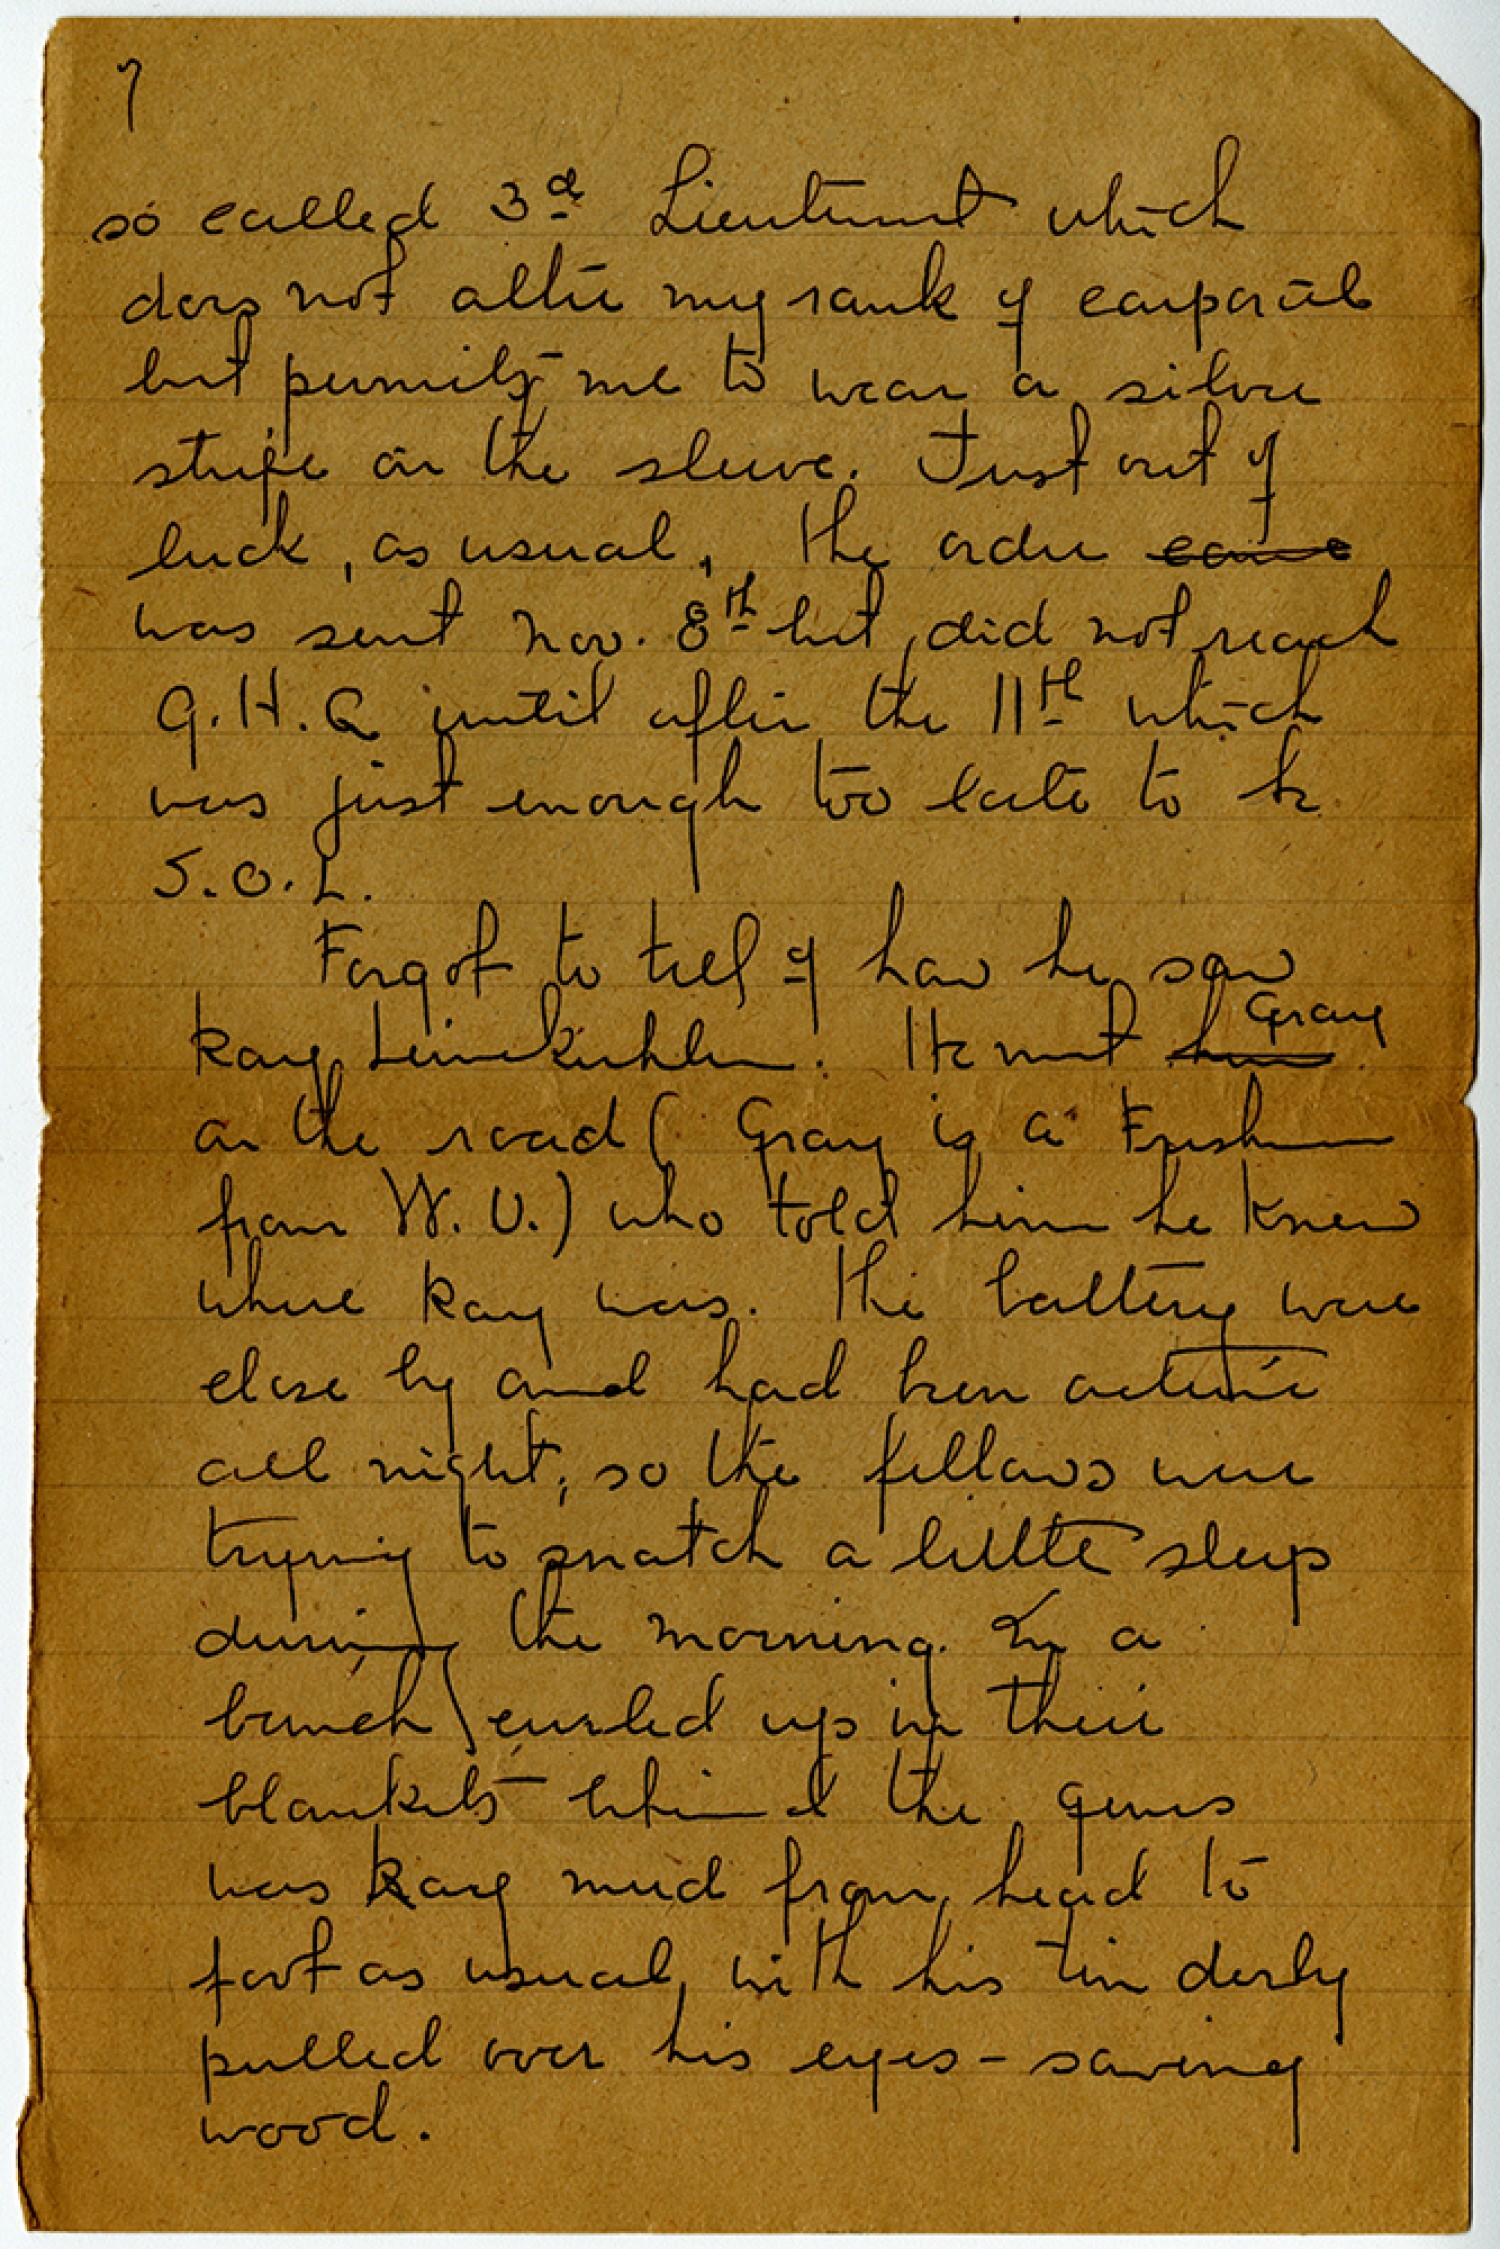 7
so called 3d Lieutenant which
does not alter my rank of corporal
but permits me to wear a silver
stripe on the sleeve. Just out of
luck, as usual, the order came
was sent Nov. 8th but did not reach
G.H.Q until after the 11th which
was just enough too late to be
S.O.L.
Forgot to tell of how he saw
Kay. He met him Gray
on the road (Gray is a Freshman
from W.U.) who told him he knew
where Kay was. The battery were
close by and had been active
all night, so the fellows were
trying to snatch a little sleep
during the morning. In a
bunch curled up in their
blankets behind the guns
was Kay mud from head to
foot as usual, with his tin derby
pulled over his eyes - sawing
wood.